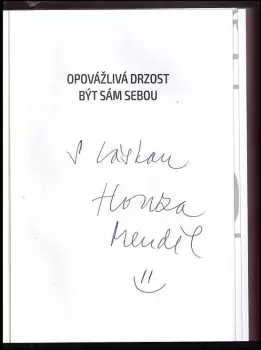 OPOVÁŽLIVÁ DRZOST
BÝT SÁM SEBOU
S láskou
Honza
Mendel